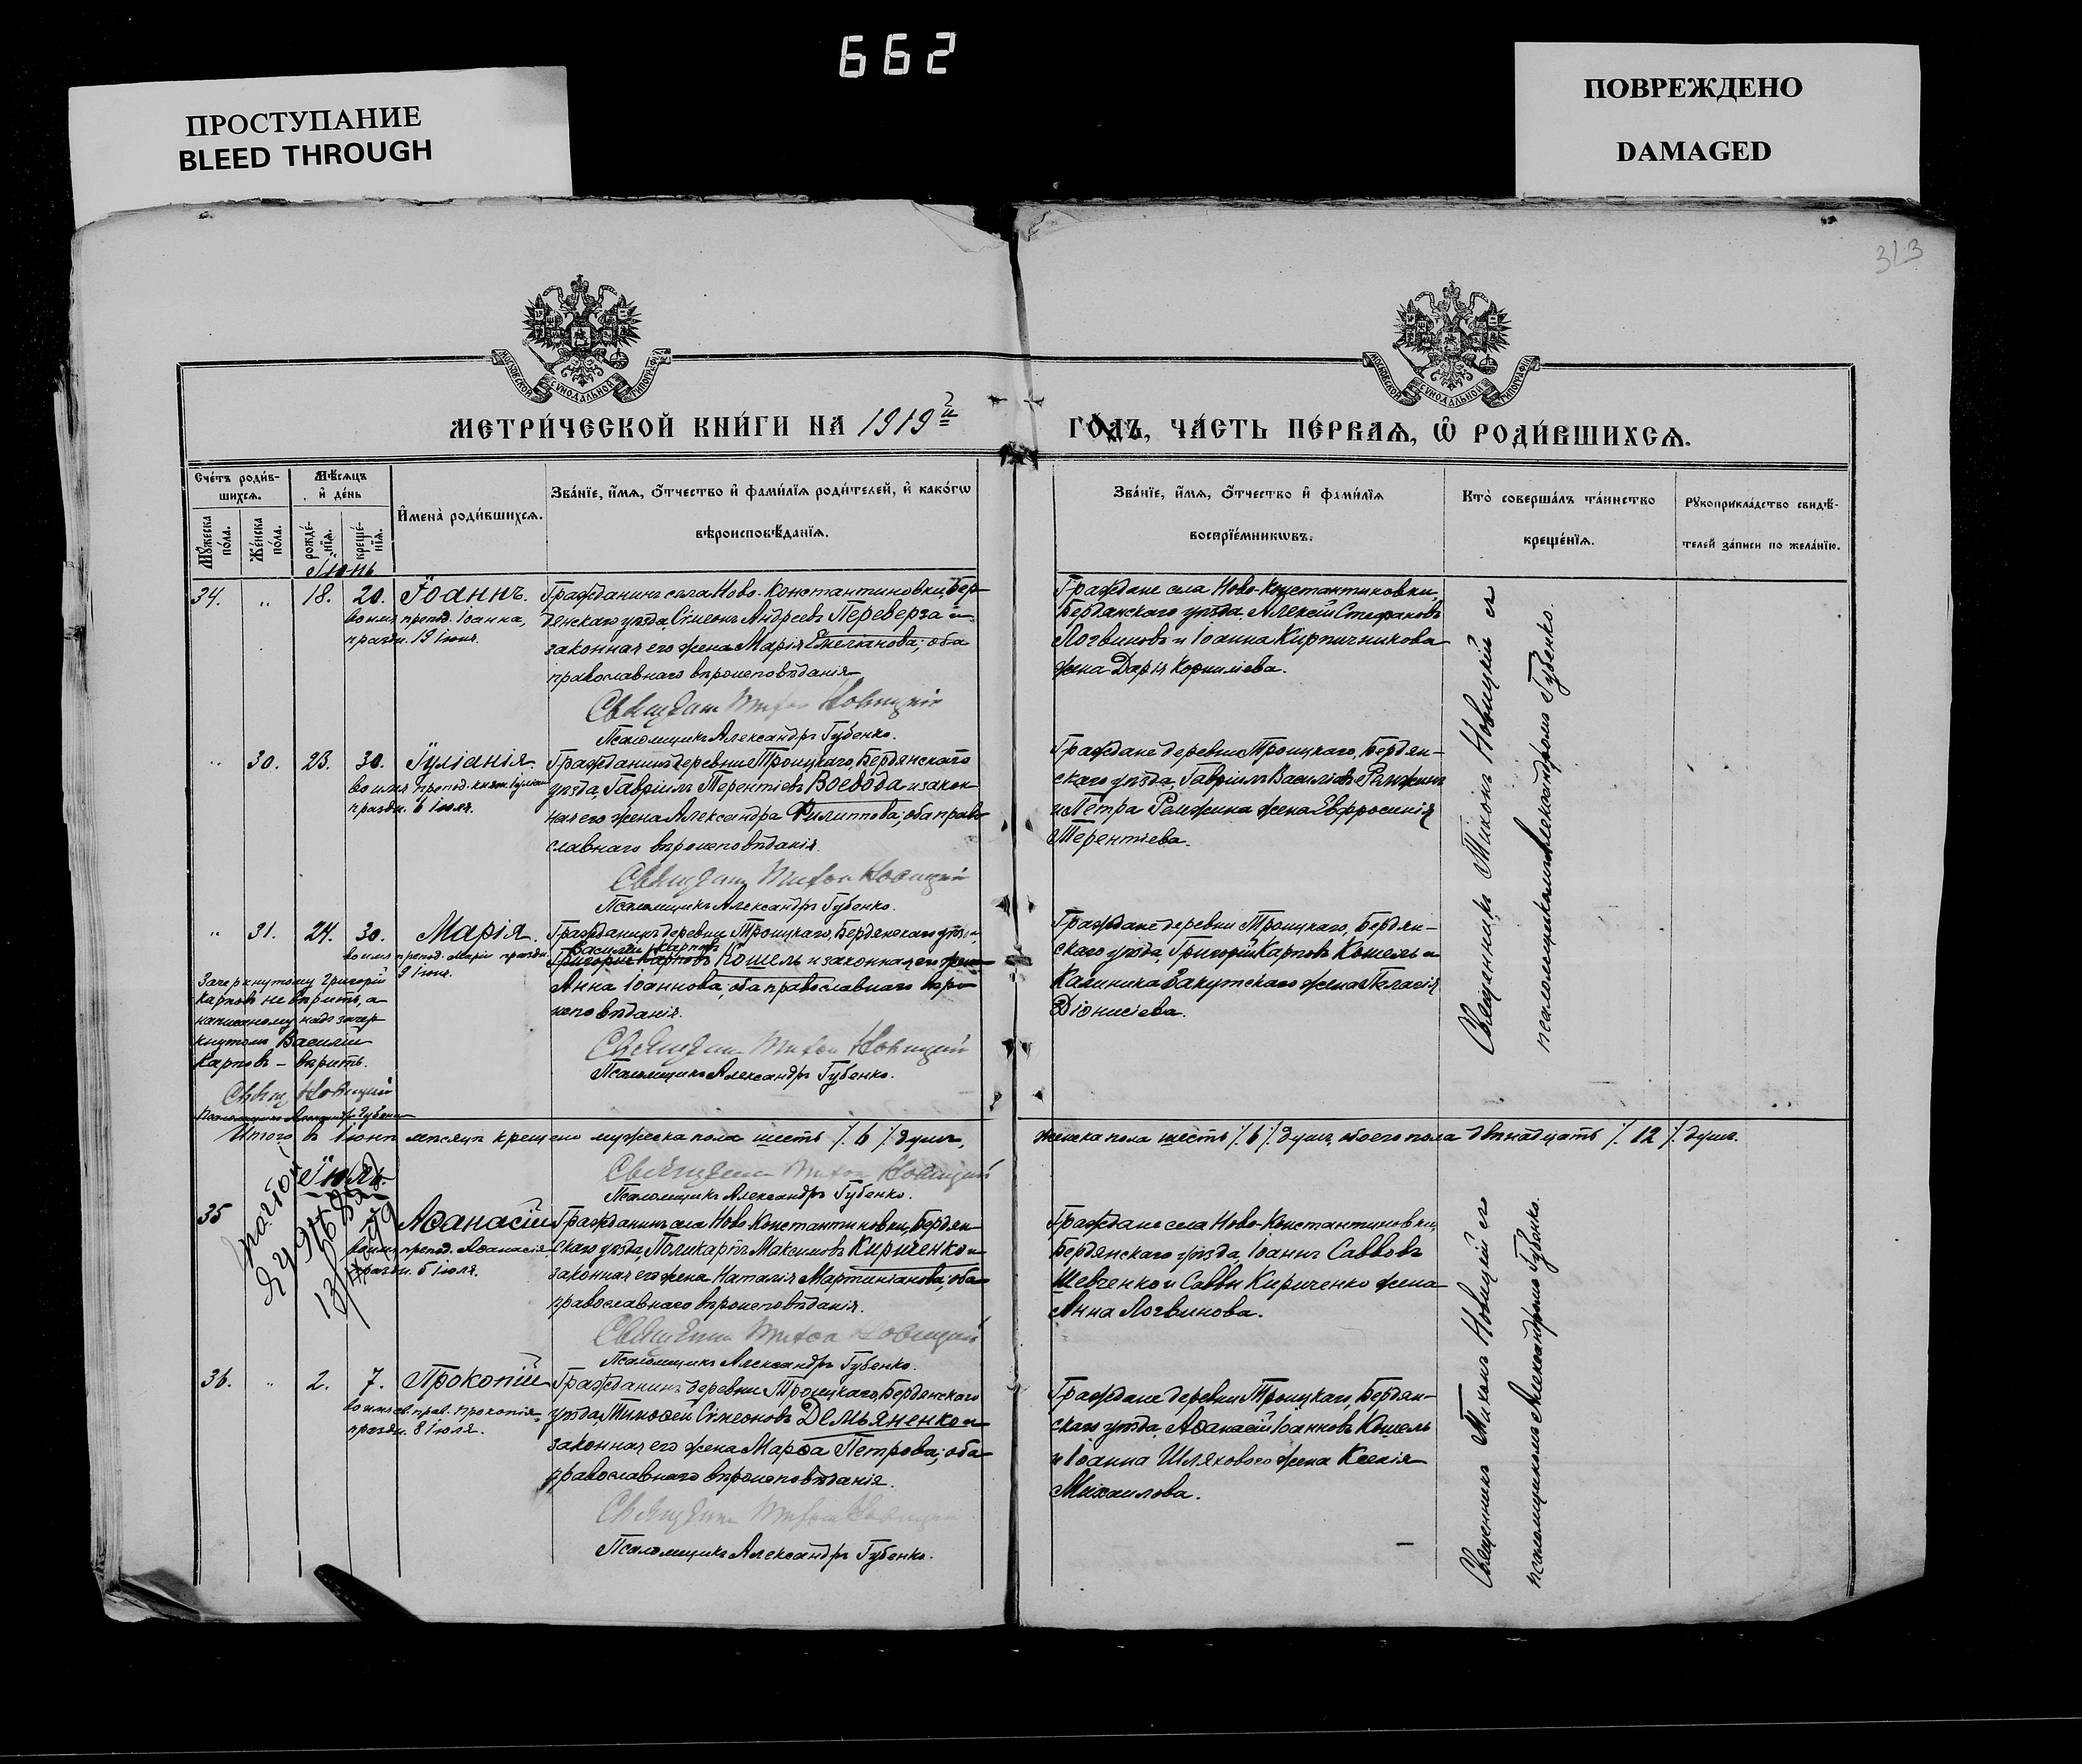 662
ПРОСТУПАНИЕ
BLEED THROUGH
ПОВРЕЖДЕНО
DAMAGED
323
МОСКОВСКОЙ СѴНОДАЛЬНОЙ ТИПОГРАФІИ
МОСКОВСКОЙ СѴНОДАЛЬНОЙ ТИПОГРАФІИ
МЕТРИ́ЧЕСКОЙ КНИ́ГИ НА 1919й
ГО́ДЪ, ЧА́СТЬ ПЕ́РВАѦ, Ѡ҆ РОДИ́ВШИХСѦ.
Сче́тъ роди́в-
шихсѧ.
Мѣ́сѧцъ
и҆ де́нь
Мꙋ́жеска
по́ла.
Же́нска
по́ла.
рожде́-
нїѧ.
креще́-
нїѧ.
И҆мена̀ роди́вшихсѧ.
Зва́нїе, и҆́мѧ, ѻ҆́тчество и҆ фами́лїѧ роди́телей, и҆ како́гѡ
вѣроисповѣ́данїѧ.
Зва́нїе, и҆́мѧ, ѻ҆́тчество и҆ фами́лїѧ
воспрїе́мникѡвъ.
Кто̀ соверша́лъ та́инство
креще́нїѧ.
Рꙋкоприкла́дство свидѣ́-
телей за́писи по жела́нїю.
Іюнь
34. „ 18. 20. Іоаннъ.
во имя препод. Іоанна,
праздн. 19 іюня.
Гражданинъ села Ново-Константиновки, Бер-
дянскаго уѣзда, Сѵмеонъ Андреевъ Переверза и
законная его жена Марія Емеліанова; оба
православнаго вѣроисповѣданія
Священ. Тихон Новицкій
Псаломщикъ Александръ Губенко.
Граждане села Ново-Константиновки,
Бердянскаго уѣзда, Алексій Стефановъ
Логвиновъ и Іоанна Кирпичникова
жена Дарія Корниліева.
„ 30. 23. 30. Іуліанія.
праздн. 6 іюля.
Гражданинъ деревни Троицкаго, Бердянскаго
уѣзда, Гавріилъ Терентіевъ Воевода и закон-
ная его жена Александра Филиппова; оба право-
славнаго вѣроисповѣданія.
Священ. Тихон Новицкій
Псаломщикъ Александръ Губенко.
Граждане деревни Троицкаго, Бердян-
скаго уѣзда, Гавріилъ Василіевъ
и Петра жена Евфросинія
Терентіева.
„ 31. 24. 30. Марія.
во имя препод. Маріи праздн.
9 іюня.
Гражданинъ деревни Троицкаго, Бердянскаго уѣзда,
Василій Карповъ
Григорій Карповъ Кошель и законная его жена
Анна Іоаннова; оба православнаго вѣро-
исповѣданія.
Священ. Тихон Новицкій
Псаломщикъ Александръ Губенко.
Зачеркнутому Григорій
Карповъ не вѣрить, а
написаному надъ зачер
кнутомъ Василій
Карповъ – вѣрить.
Свящ. Новицкій
Псаломщикъ Александръ Губенко
Граждане деревни Троицкаго, Бердян-
скаго уѣзда, Григорій Карповъ Кошель и
Калиника Закутскаго жена Пелагія
Діонисіева.
Священникъ Тихонъ Новицкій съ
псаломщикомъ Александромъ Губенко.
Итого въ іюнѣ мѣсяцѣ крещено мужеска пола шесть /. 6 /. душъ,
женска пола шесть /. 6 /. душъ, обоего пола двѣнадцать /. 12 /. душъ.
Священ. Тихон Новицкій
Псаломщикъ Александръ Губенко.
Іюль.
35 Аѳанасій
во имя препод. Аѳанасія
праздн. 5 іюля.
Гражданинъ села Ново-Константиновки, Бердян-
скаго уѣзда, Поликарпъ Максимовъ Кириченко и
законная его жена Наталія Мартиніанова; оба
православнаго вѣроисповѣданія.
Священ. Тихон Новицкій
Псаломщикъ Александръ Губенко.
Граждане села Ново-Константиновки,
Бердянскаго уѣзда, Іоаннъ Саввовъ
Шевченко и Саввы Кириченко жена
Анна Логвинова.
36. „ 2. 7. Прокопій
во имя св. прав. Прокопія,
праздн. 8 іюля.
Гражданинъ деревни Троицкаго, Бердянскаго
уѣзда, Тимоѳей Сѵмеоновъ Демьяненко и
законная его жена Марѳа Петрова; оба
православнаго вѣроисповѣданія.
Священ. Тихон Новицкій
Псаломщикъ Александръ Губенко.
Граждане деревни Троицкаго, Бердян-
скаго уѣзда, Аѳанасій Іоанновъ Кошель
и Іоанна Шляхового жена Ксенія
Михаилова.
Священникъ Тихонъ Новицкій съ
псаломщикомъ Александромъ Губенко.